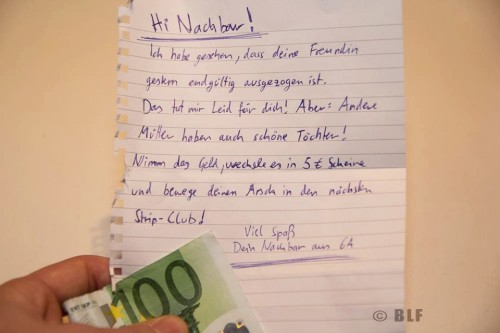 Hi Nachbar!
Ich habe gesehen, dass deine Freundin
gestern endgültig ausgezogen ist.
Das tut mir Leid für dich! Aber: Andere
Mütter haben auch schöne Töchter!
Nimm das Geld, wechsle es in 5 € Scheine
und bewege deinen Arsch in den nächsten
Strip-Club!
Viel Spaß
Dein Nachbar aus 6A
100
© BLF